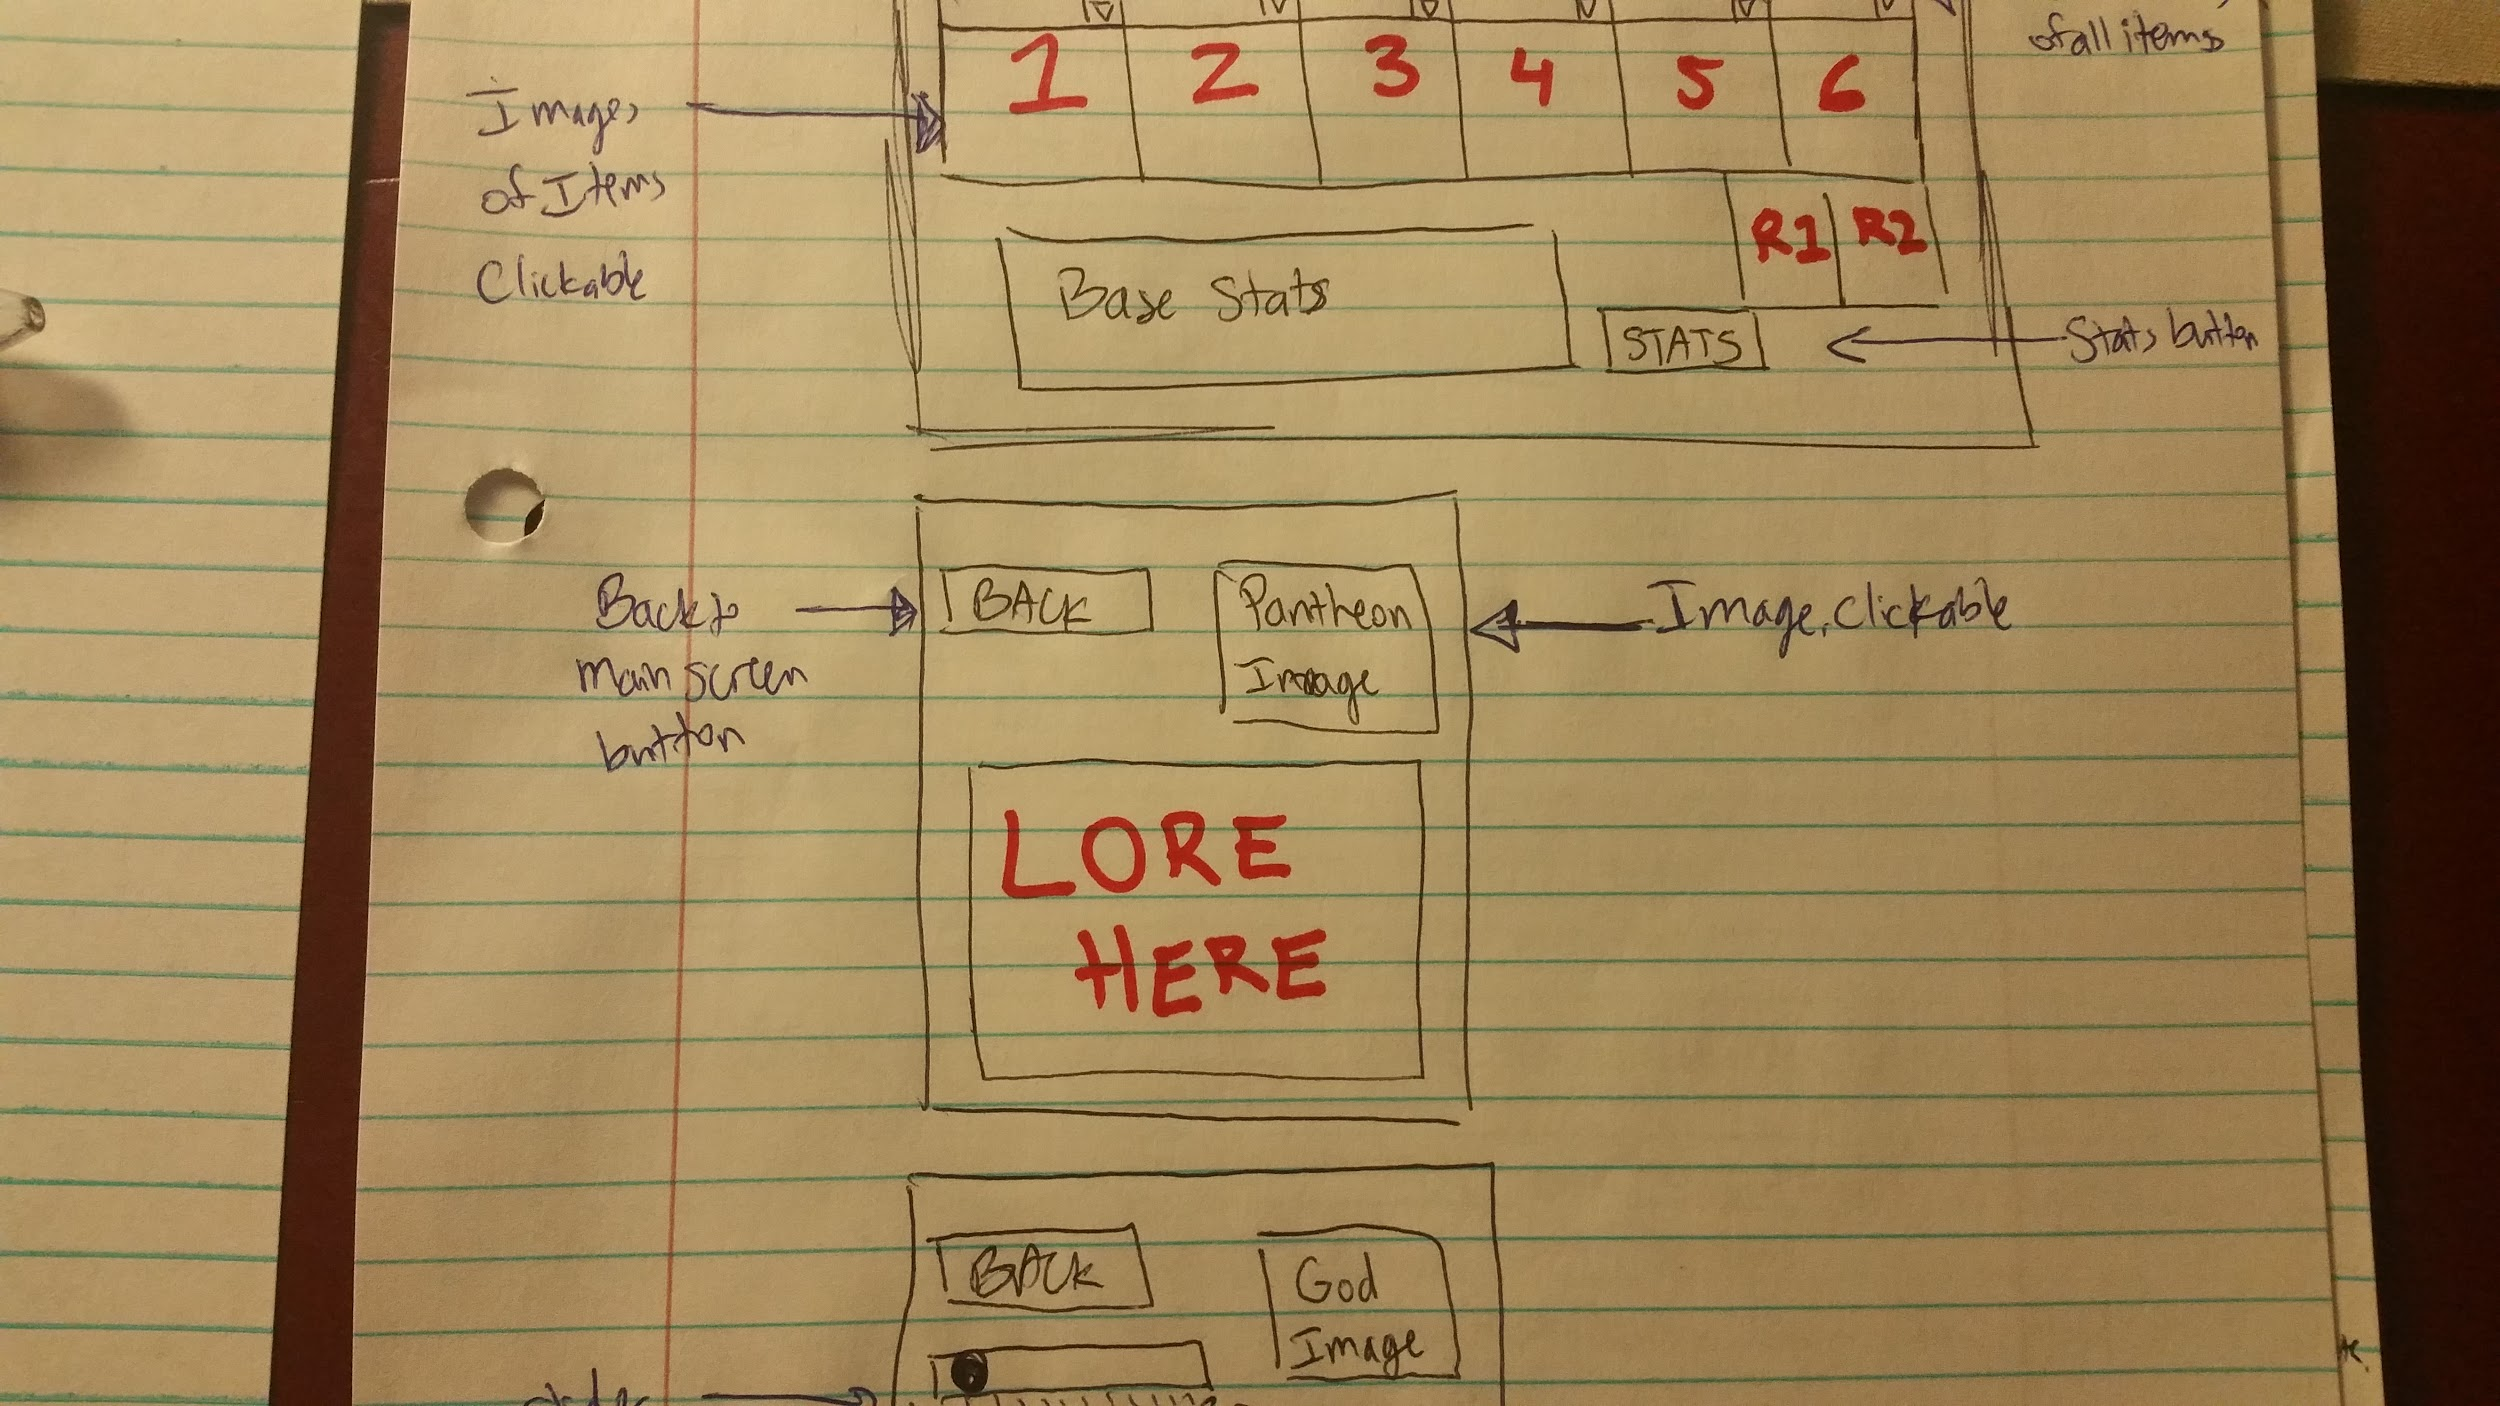 of all items
1 2 3 4 5 6
Images
of Items
Clickable
R1 R2
Base Stats
STATS
Stats button
Back to
main screen
button
BACK
Pantheon
Image
Image, Clickable
LORE
HERE
BACK
God
Image